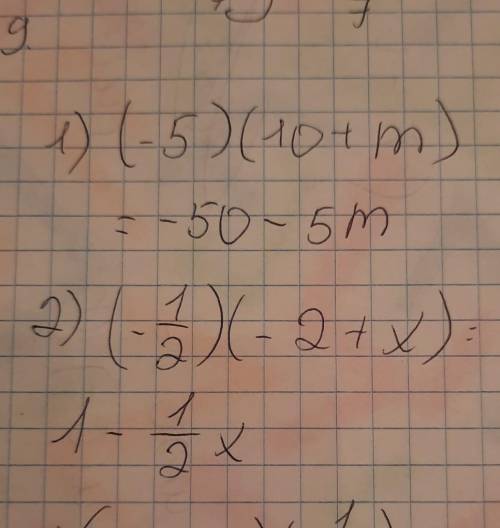 9.
1) (-5)(10+m)
= -50 - 5m
2) (-1/2)(-2+x)=
1 - 1/2 x